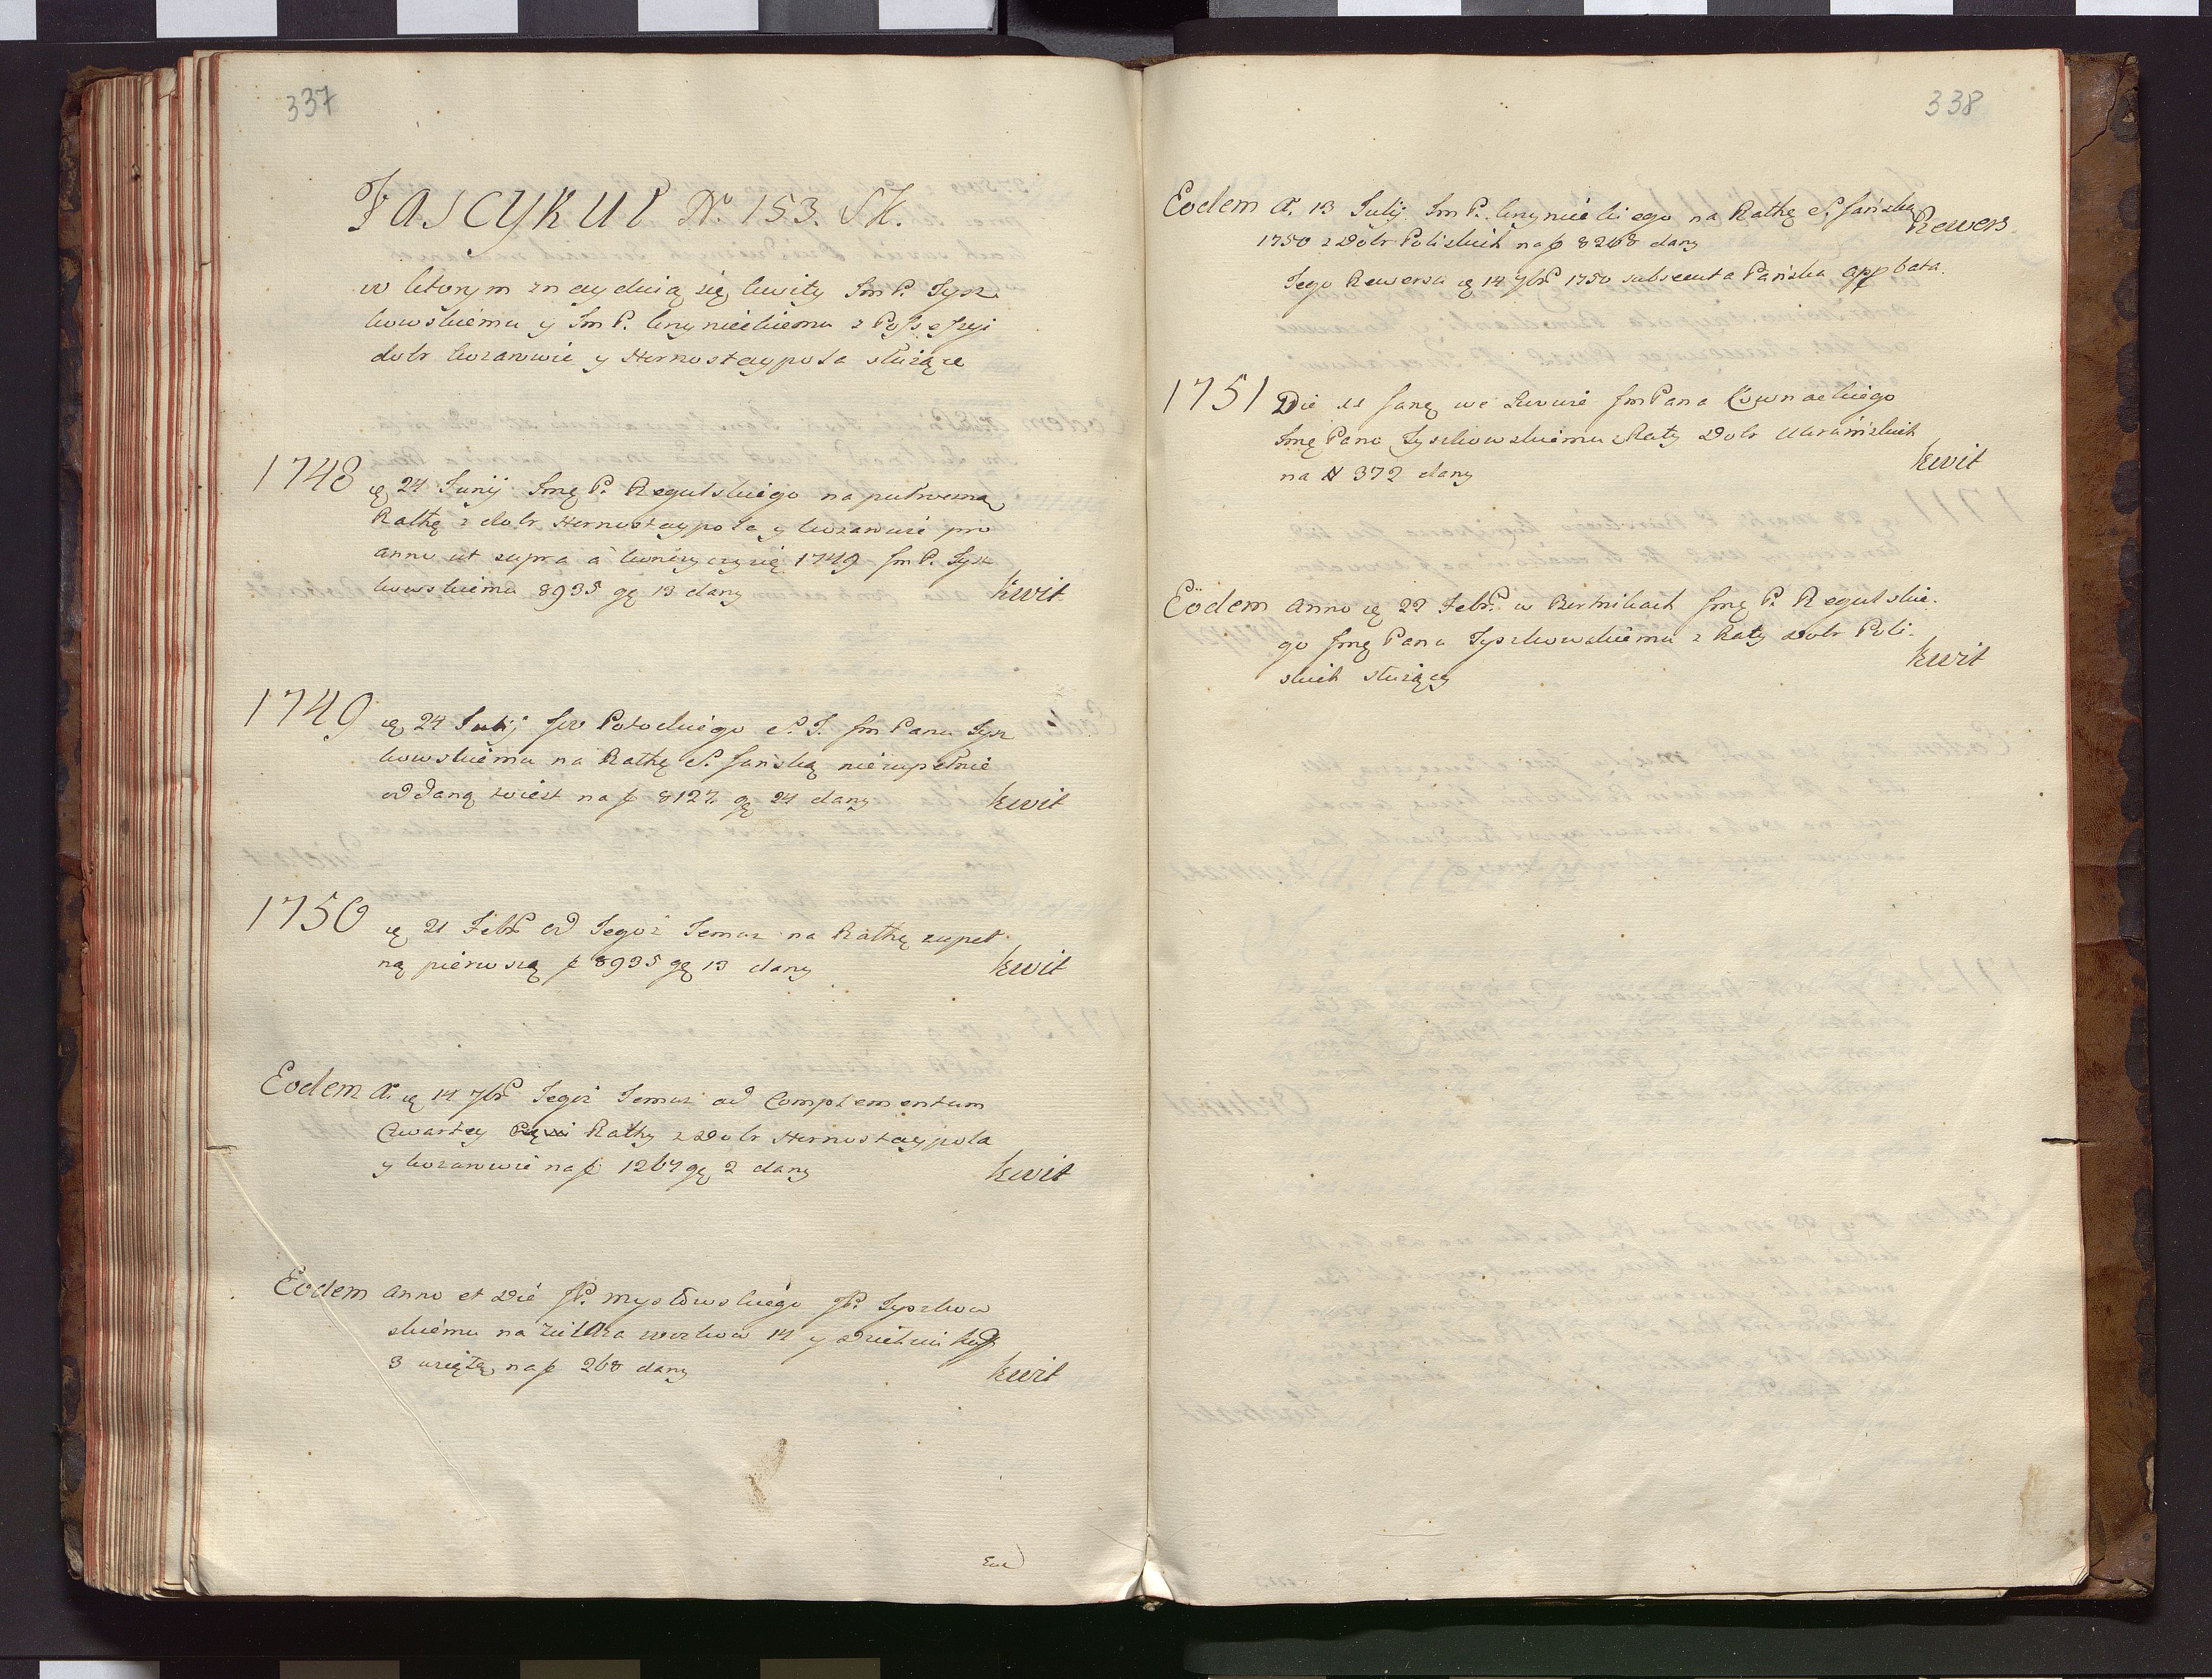 337
FASCYKUŁ No 153. SK.
w ktorym znayduią się kwity Jm P. Tysz.
kowskiemu y Jm P. krynickiemu z Possessyi
dobr koranwie y Hornostaypola słuzące
1748 ię 24 Junij Jmę P. Regulskiego na pułroczną
Rathę z dobr Hornostaypola y koranwie pro
anno ut supra a konczyczy się 1749 Jm P. Tysz
kowskiemu 8935 gę 13 dany
kwit
1749 ię 24 Julij Jw Potockiego S. J. Jm Panu Tysz
kowskiemu na Rathę S. Jańską niezupełnie
oddaną wiest na f 8127 gę 24 dany
kwit
1750 ię 21 Febr od Tegoz Temuz na Rathę zupeł
ną pierwszą f 8935 gę 13 dany
kwit
Eodem A. ię 14 7br Tegoz Temuz ad Complementum
Czwartey Rathy z Dobr Hornostaypola
y koranwie na f 1267 gę 2 dany
kwit
Eodem anno et Die JP. mysłowskiego JP. Tyszkow
skiemu na workow 14 y
3 wziętą na f 268 dany
kwit
338
Eodem A. 13 Julij Jm P. krynickiego na Rathę S. Jańską
1750 z Dobr Poliskich na f 8268 dany
Rewers
Tego Rewersu ię 14 7br 1750 subsecuta Pańska appbata.
1751 Die 21 Janę we Lwowie Jm Pana Kownackiego
Jmę Panu Tyszkowskiemu z Raty Dobr Ukrainskich
na # 372 dany
kwit
Eodem anno ię 22 Febr w Bortnikach Jmę P. Regulskie.
go Jmę Panu Tyszkowskiemu z Raty Dobr Poli.
skich słuzący
kwit